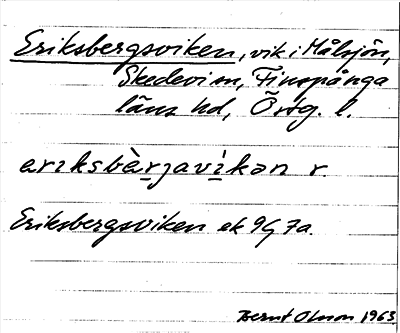 Eriksbergsviken, vik i Målsjön,
Skedevi sn, Finspånga
läns hd, Östg. l.
erıksbæ̀rjavìkən r.
Eriksbergsviken ek 9G 7a.
Bernt Olsson 1963